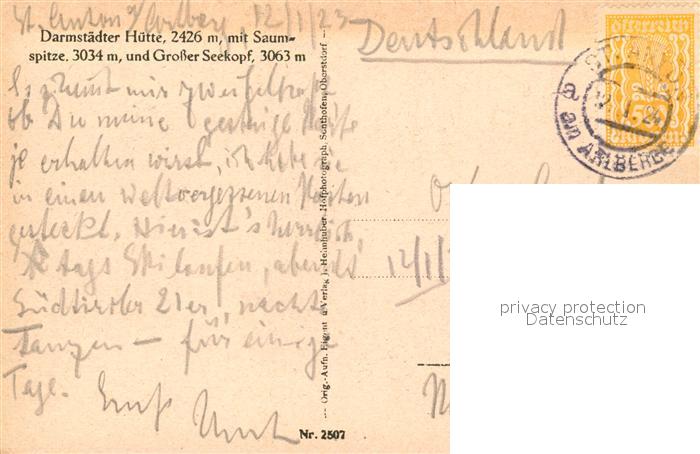 St. Anton a/Arlberg, 12/1/23
Darmstädter Hütte, 2426 m, mit Saum-
spitze, 3034 m, und Großer Seekopf, 3063 m
Deutschland
Es scheint mir zweifelhaft
ob Du meine gestrige Karte
je erhalten wirst, ich habe sie
in einen weltvergessenen Kasten
gesteckt. Hier ist's herrlich,
tags Skilaufen, abends
Südtiroler 21er, nachts
Tanzen – für einige
Tage.
Orig.-Aufn. Eigent. u. Verlag J. Heimhuber, Hofphotograph, Sonthofen, Oberstdorf
Nr. 2507
12/1/
Österreich
ST. ANTON
a
am ARLBERG
privacy protection
Datenschutz